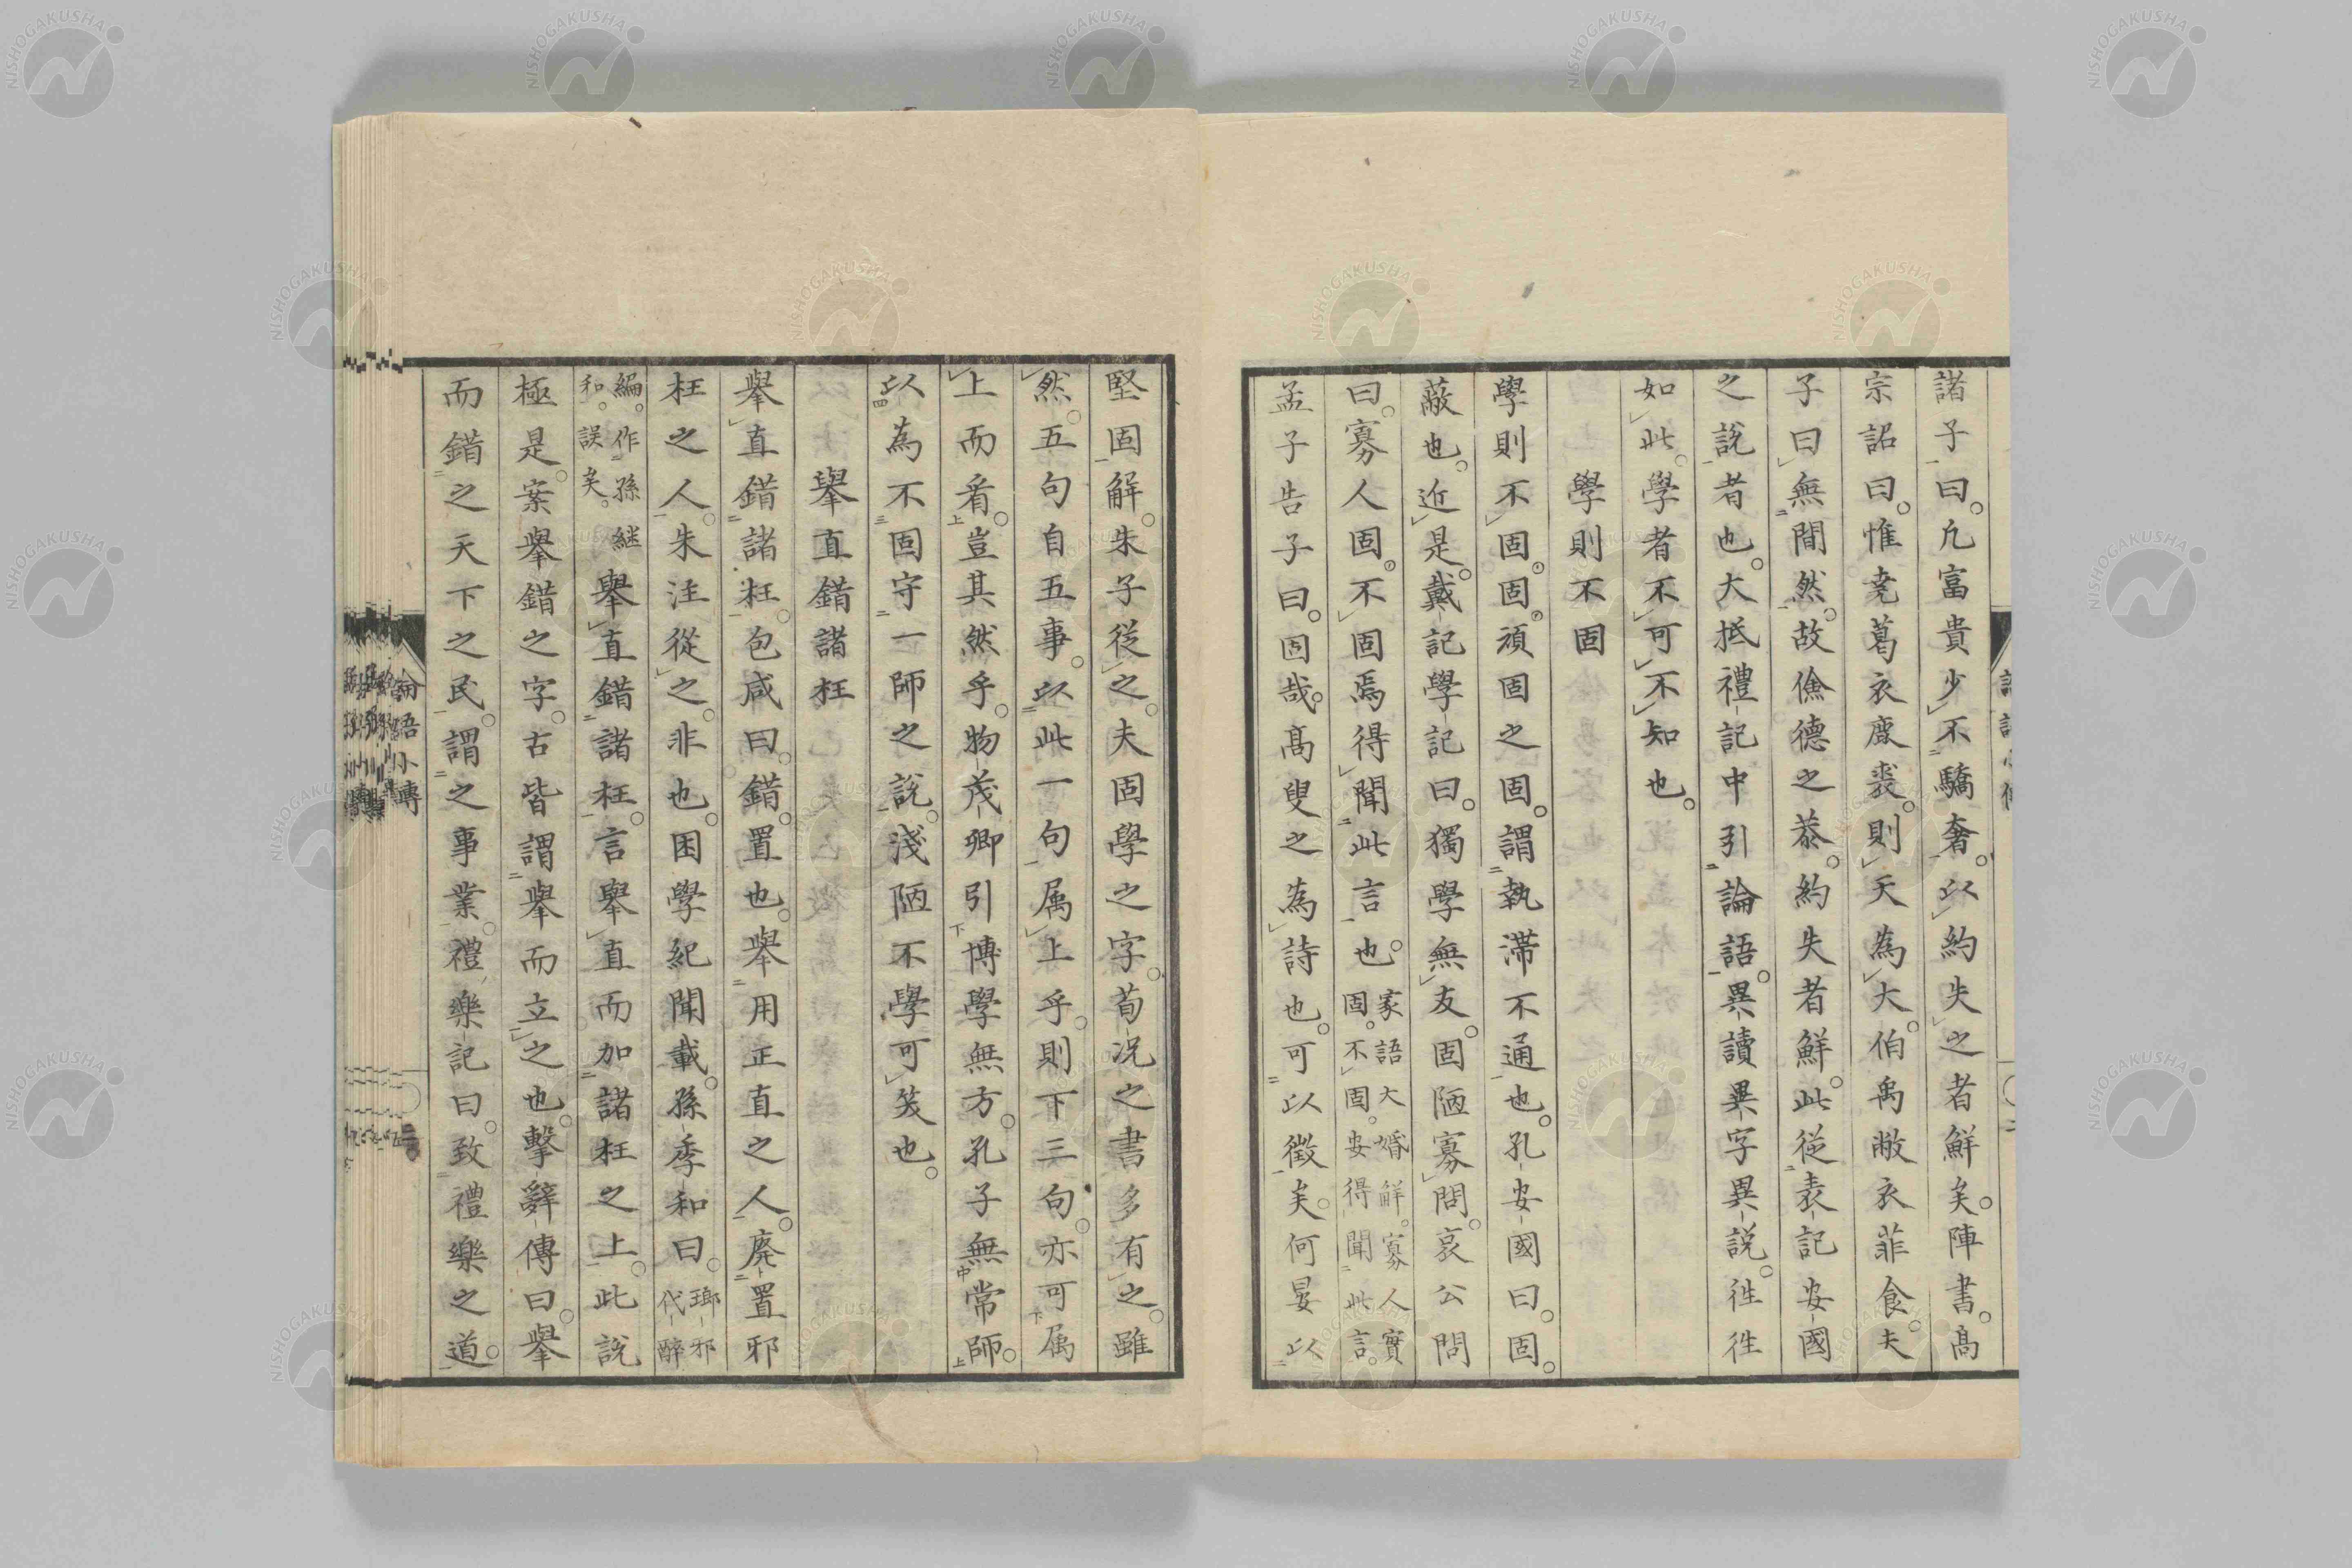 諸子曰。凡富貴少不驕奢。以約失之者鮮矣。陣書。高
宗詔曰。惟堯葛衣鹿裘。則天為大。伯禹敝衣菲食。夫
子曰無間然。故儉德之恭。約失者鮮。此從表記安國
之說者也。大抵禮記中引論語。異讀異字異說。徃徃
如此。學者不可不知也。
學則不固
學則不固。固。頑固之固。謂執滯不通也。孔安國曰。固。
蔽也。近是。戴記學記曰。獨學無友。固陋寡問。哀公問
曰。寡人固。不固焉得聞此言也。家語大婚解。寡人實固。不固。安得聞此言。
孟子告子曰。固哉。髙叟之為詩也。可以徵矣。何晏以
堅固解。朱子從之。夫固學之字。荀况之書多有之。雖
然。五句自五事。以此一句属上乎。則下三句。亦可属
上而看。豈其然乎。物茂卿引博學無方。孔子無常師。
以為不固守一師之說。淺陋不學可笑也。
舉直錯諸枉
舉直錯諸枉。包咸曰。錯。置也。舉用正直之人。廃置邪
枉之人。朱注從之。非也。困學紀聞載。孫季和曰。瑯邪代醉
編。作孫継和。誤矣。舉直錯諸枉。言舉直而加諸枉之上。此說
極是。案舉錯之字。古皆謂舉而立之也。擊辭傳曰。舉
而錯之天下之民。謂之事業。禮樂記曰。致禮樂之道。
論語小傳